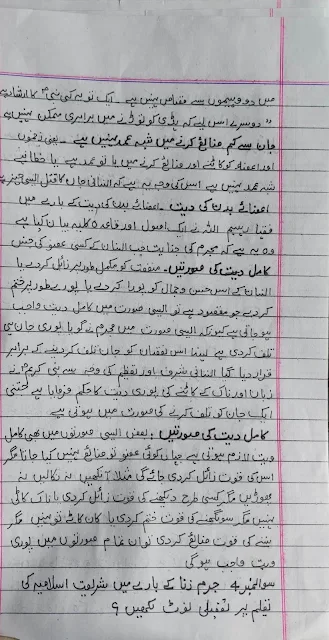 میں دو وجہوں سے قصاص نہیں ہے ۔ ایک تو یہ کہ نبیؐ کا ارشاد ہے
" دوسرے اس لیے کہ ہڈی کو توڑنے میں برابری ممکن نہیں ہے
جان سے کم ضائع کرنے میں شبہ عمد نہیں ہے ۔ یعنی زخموں
اور اعضاء کو کاٹنے اور ضائع کرنے میں یا تو عمد ہے یا خطا ہے
شبہ عمد نہیں ہے اس کی وجہ یہ ہے کہ انسانی جان کا قتل ایسی چیز ہے
اعضائے بدن کی دیت ۔ اعضائے بدن کی دیت کے بارے میں
فقہاء رحمہم اللہ نے ایک اصول اور قاعدہ کلیہ بیان کیا ہے
وہ یہ ہے کہ مجرم کی جنایت جب انسان کے کسی عضو کی جنس
کامل دیت کی صورتیں ۔ منفعت کو مکمل طور پر زائل کر دے یا
انسان کے اس حسن و جمال کو پورا کر دے یا پورے طور پر ختم
کر دے جو مقصود ہے تو ایسی صورت میں کامل دیت واجب
ہو جاتی ہے کیونکہ ایسی صورت میں مجرم نے گویا پوری جان ہی
تلف کر دی ہے لہذا اس نقصان کو جان تلف کر دینے کے برابر
قرار دیا گیا انسانی شرف اور تعظیم کی وجہ سے نبی کریمؐ نے
زبان اور ناک کے کاٹنے کی پوری دیت کا حکم فرمایا ہے جتنی
ایک جان کو تلف کرنے کی صورت میں ہوتی ہے
کامل دیت کی صورتیں : بعض ایسی صورتوں میں بھی کامل
دیت لازم ہوتی ہے جہاں کوئی عضو تو ضائع نہیں کیا جاتا مگر
اس کی قوت زائل کر دی جائے گی مثلا آنکھیں نہ نکالیں نہ
پھوڑیں مگر کسی طرح دیکھنے کی قوت زائل کر دی یا ناک کاٹی
نہیں مگر سونگھنے کی قوت ختم کر دی یا کان کاٹے تو نہیں مگر
سننے کی قوت ضائع کر دی تو ان تمام صورتوں میں پوری
دیت واجب ہو گی
سوال نمبر 4 ۔ جرم زنا کے بارے میں شریعت اسلامیہ کی
تعلیم پر تفصیلی نوٹ لکھیں ؟